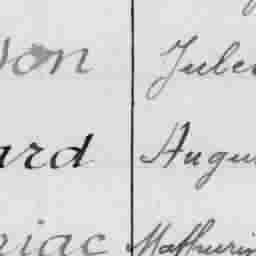 son Jules
ard Augu
riac Mathurin